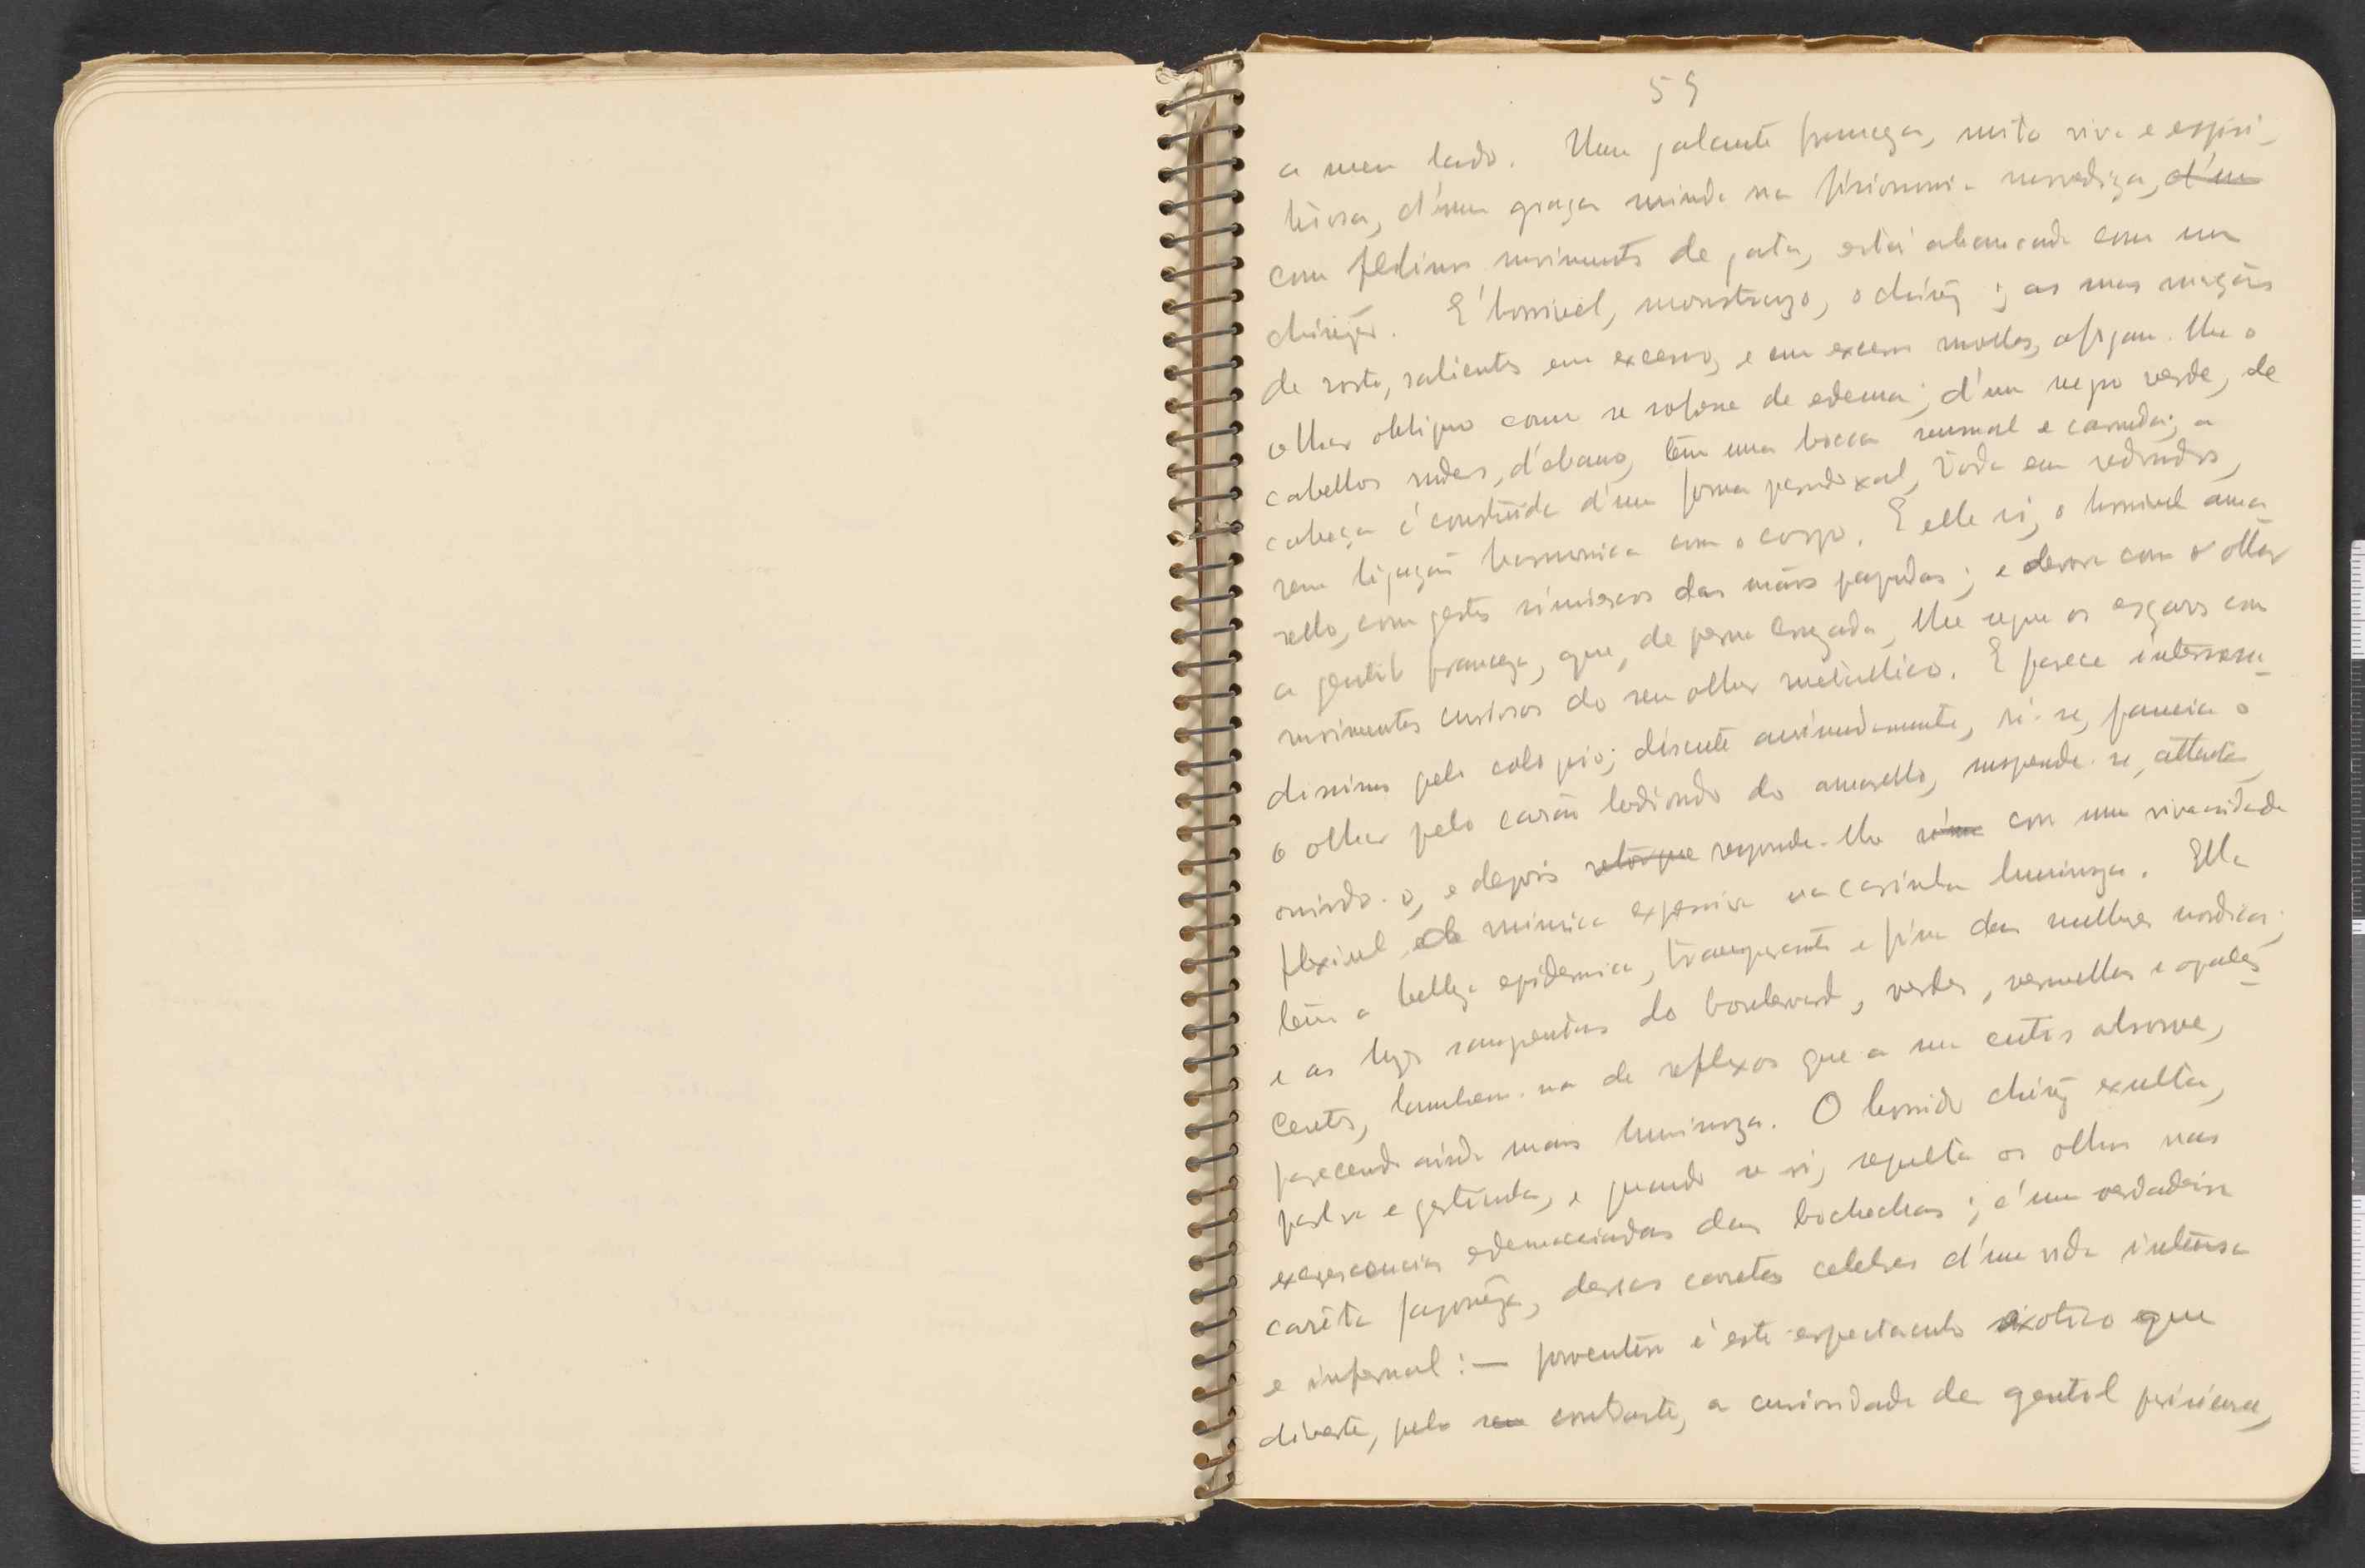 59
a meu lado. Uma galante franceza, muito viva e espiri-
tuosa, d'uma graça miuda na fisionomia movediça, d'um
com felinos movimentos de gata, está abancada com um
chinez. E' horrivel, monstruozo, o chinez; as maçãs
de rosto, salientes em excesso, e em excesso molles, afogam-lhe o
olhar obliquo como se sofresse de edema; d'um negro verde, de
cabellos rudes, d'ebano, tem uma bocca sensual e carnuda; a
cabeça é construida d'uma forma paradoxal, toda em redondos,
sem ligação harmonica com o corpo. E elle ri, o horrivel ama-
rello, com gestos simiescos das mãos papudas; e devora com o olhar
a gentil franceza, que, de perna cruzada, lhe segue os esgares com
movimentos curiosos do seu olhar metallico. E parece interessa-
dissima pelo coloquio; discute animadamente, ri-se, passeia o
o olhar pelo carão hediondo do amarello, suspende-se, attenta,
ouvindo-o, e depois retorque responde-lhe com uma vivacidade
flexivel, de mimica expressiva na carinha luminoza. Ella
tem a belleza epidermica, transparente e fina das mulheres nordicas;
e as luzes sangrentas do boulevard, verdes, vermelhas e opales-
centes, lambem-na de reflexos que a sua cutis absorve,
parecendo ainda mais luminoza. O horrido chinez exulta,
palra e gesticula, e quando se ri, sepulta os olhos nas
excrescencias edemaciadas das bochechas; é uma verdadeira
carêta japoneza, dessas caretas celebres d'uma vida intensa
e infernal: — porventura é este espectaculo exotico que
diverte, pelo seu contraste, a curiosidade da gentil parisiense,